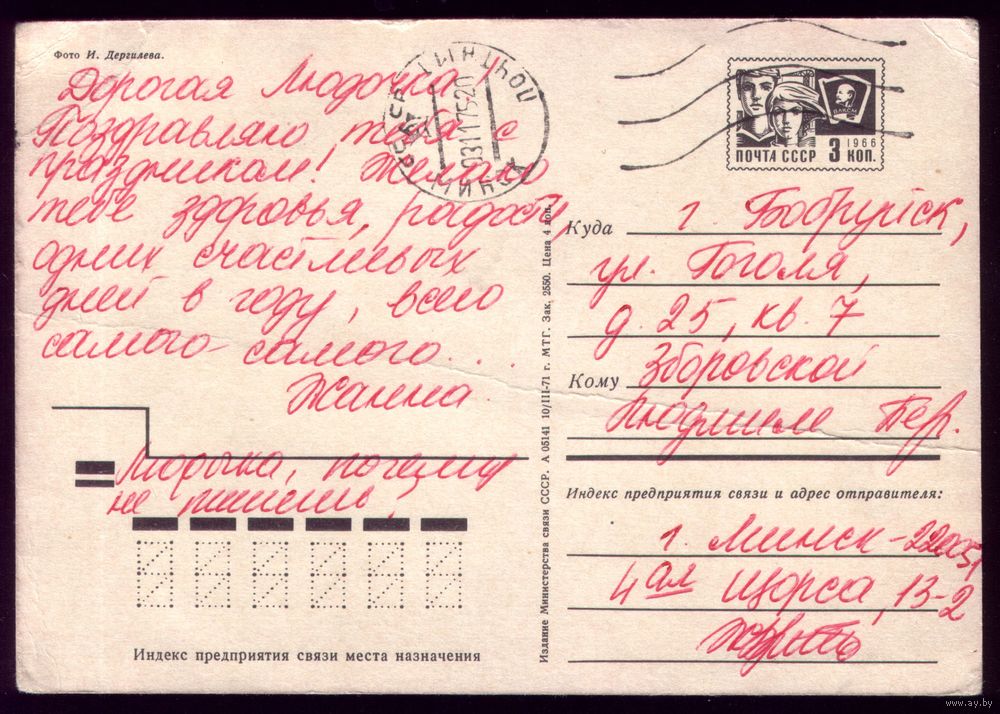 Фото И. Дергилева.
Дорогая Людочка!
Поздравляю тебя с
праздником! Желаю
тебе здоровья, радости,
одних счастливых
дней в году, всего
самого-самого...
Жанна.
Людочка, почему
не пишешь?
Индекс предприятия связи места назначения
Издание Министерства связи СССР. А 05141 10/III-71 г. МТГ. Зак. 2550. Цена 4 коп.
МИНСК ПОЧТАМТ
031175 20
ВЛКСМ
1966
ПОЧТА СССР 3 КОП.
Куда г. Бобруйск,
ул. Гоголя,
д. 25, кв. 7
Кому Зборовской
Людмиле Бер.
Индекс предприятия связи и адрес отправителя:
г. Минск-220051
4ая Щорса, 13-2
www.ay.by